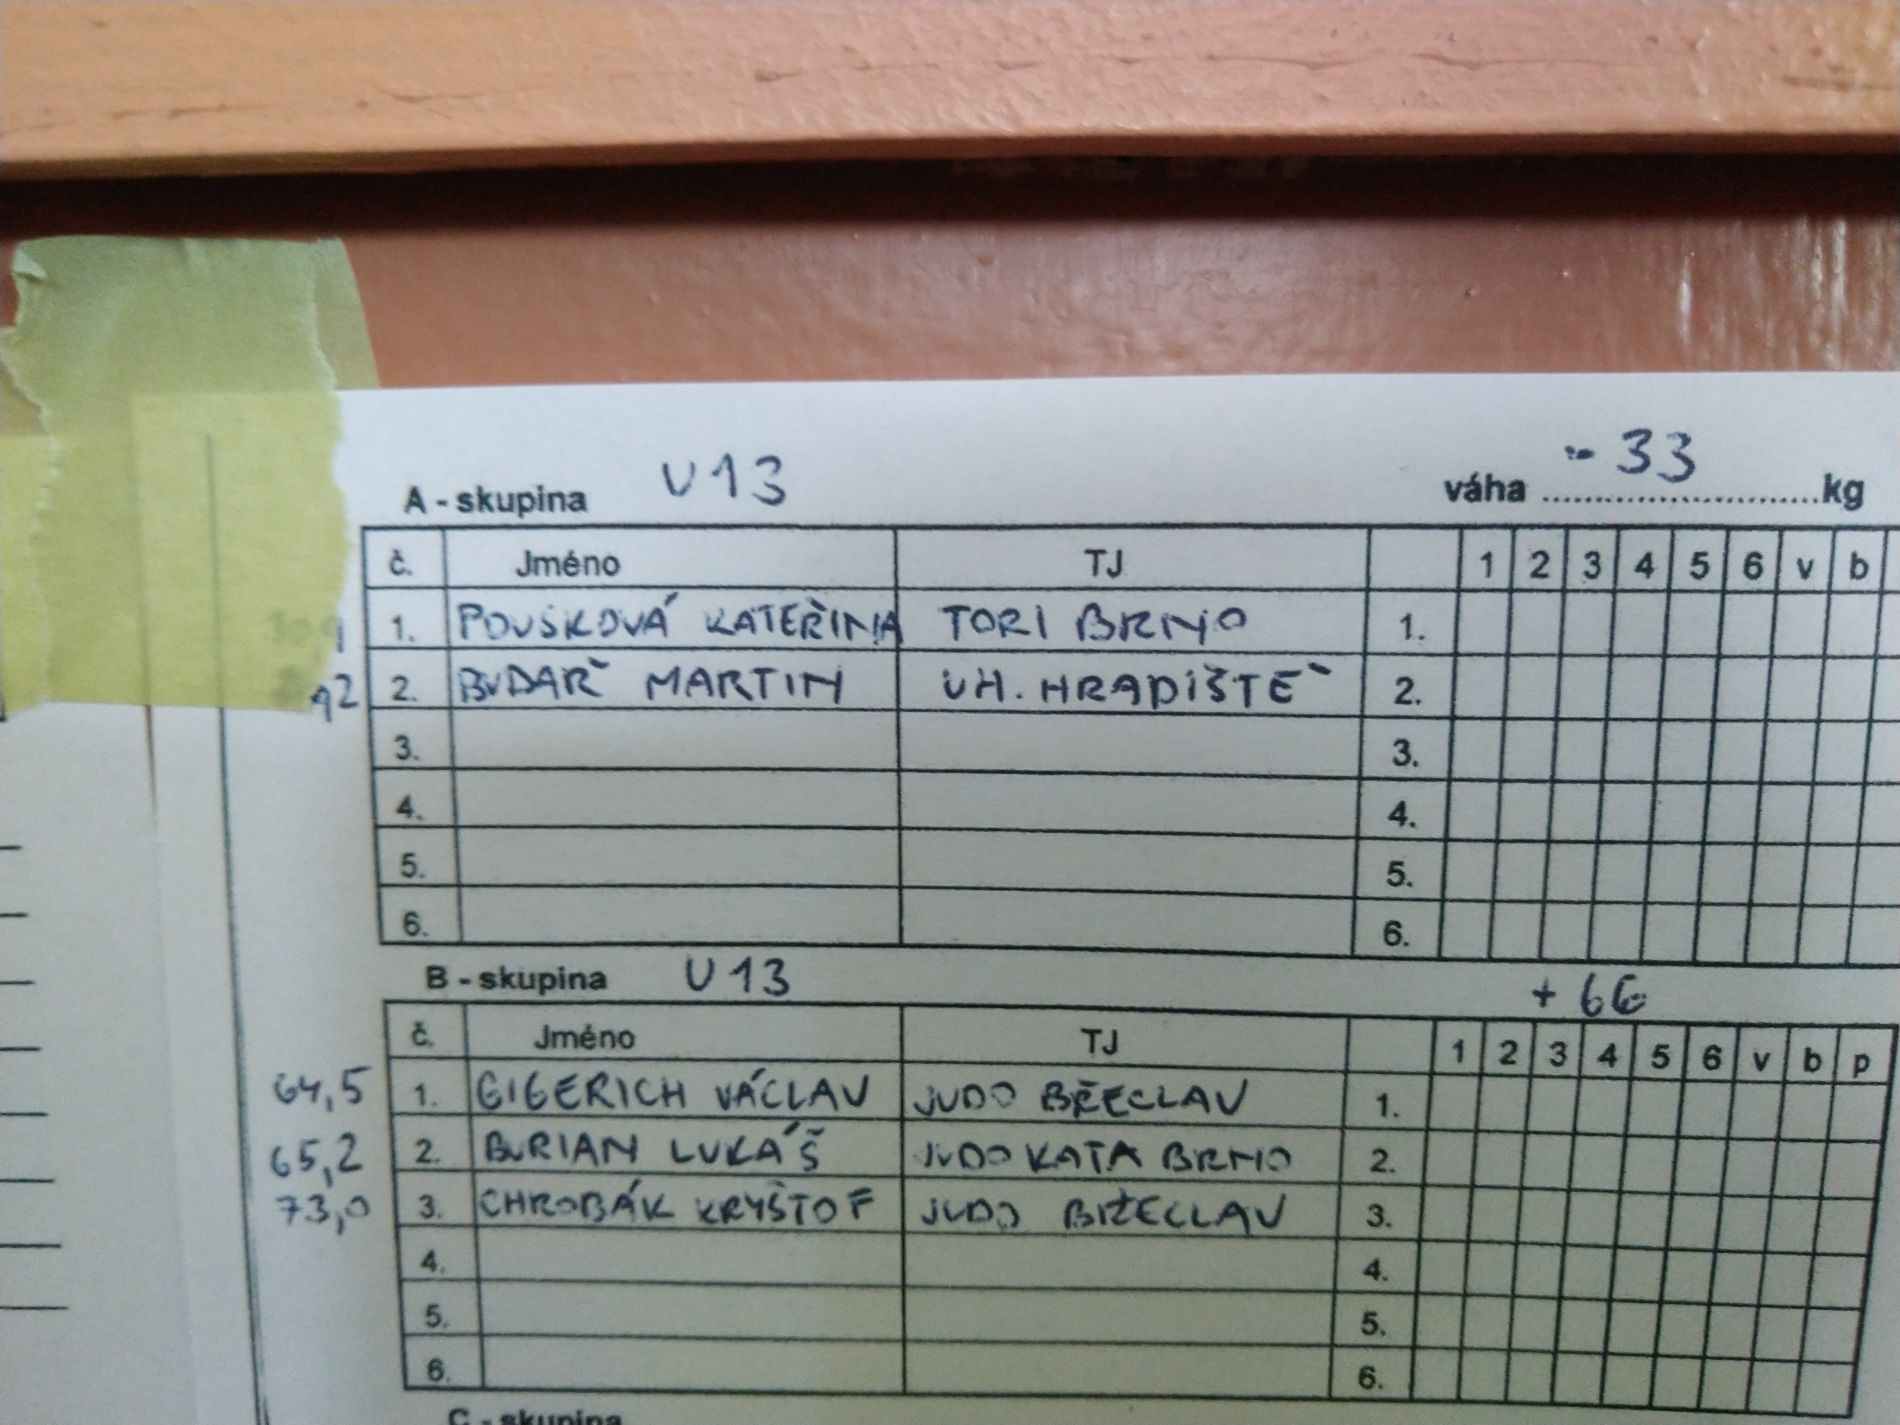 A - skupina U13 váha - 33 kg
č. Jméno TJ 1 2 3 4 5 6 v b
1. POUSKOVÁ KATEŘINA TORI BRNO 1.
2. BUDAŘ MARTIN UH. HRADIŠTĚ 2.
3. 3.
4. 4.
5. 5.
6. 6.
B - skupina U13 + 66
č. Jméno TJ 1 2 3 4 5 6 v b p
64,5 1. GIGERICH VÁCLAV JUDO BŘECLAV 1.
65,2 2. BURIAN LUKÁŠ JUDO KATA BRNO 2.
73,0 3. CHROBÁK KRYŠTOF JUDO BŘECLAV 3.
4. 4.
5. 5.
6. 6.
C - skupina